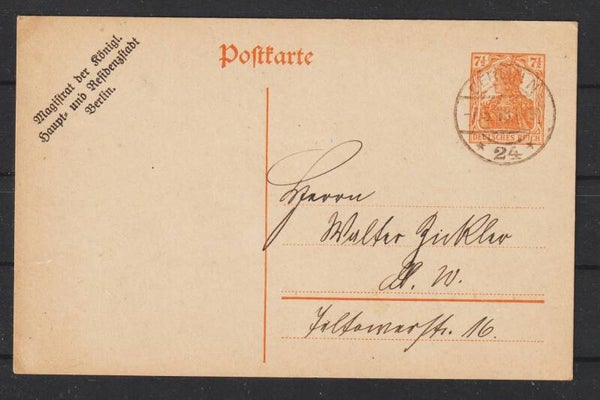 Magistrat der Königl.
Haupt- und Residenzstadt
Berlin.
Postkarte
7½ 7½
DEUTSCHES REICH
BERLIN
24
Herrn
Walter Zickler
S. W.
Teltowerstr. 16.